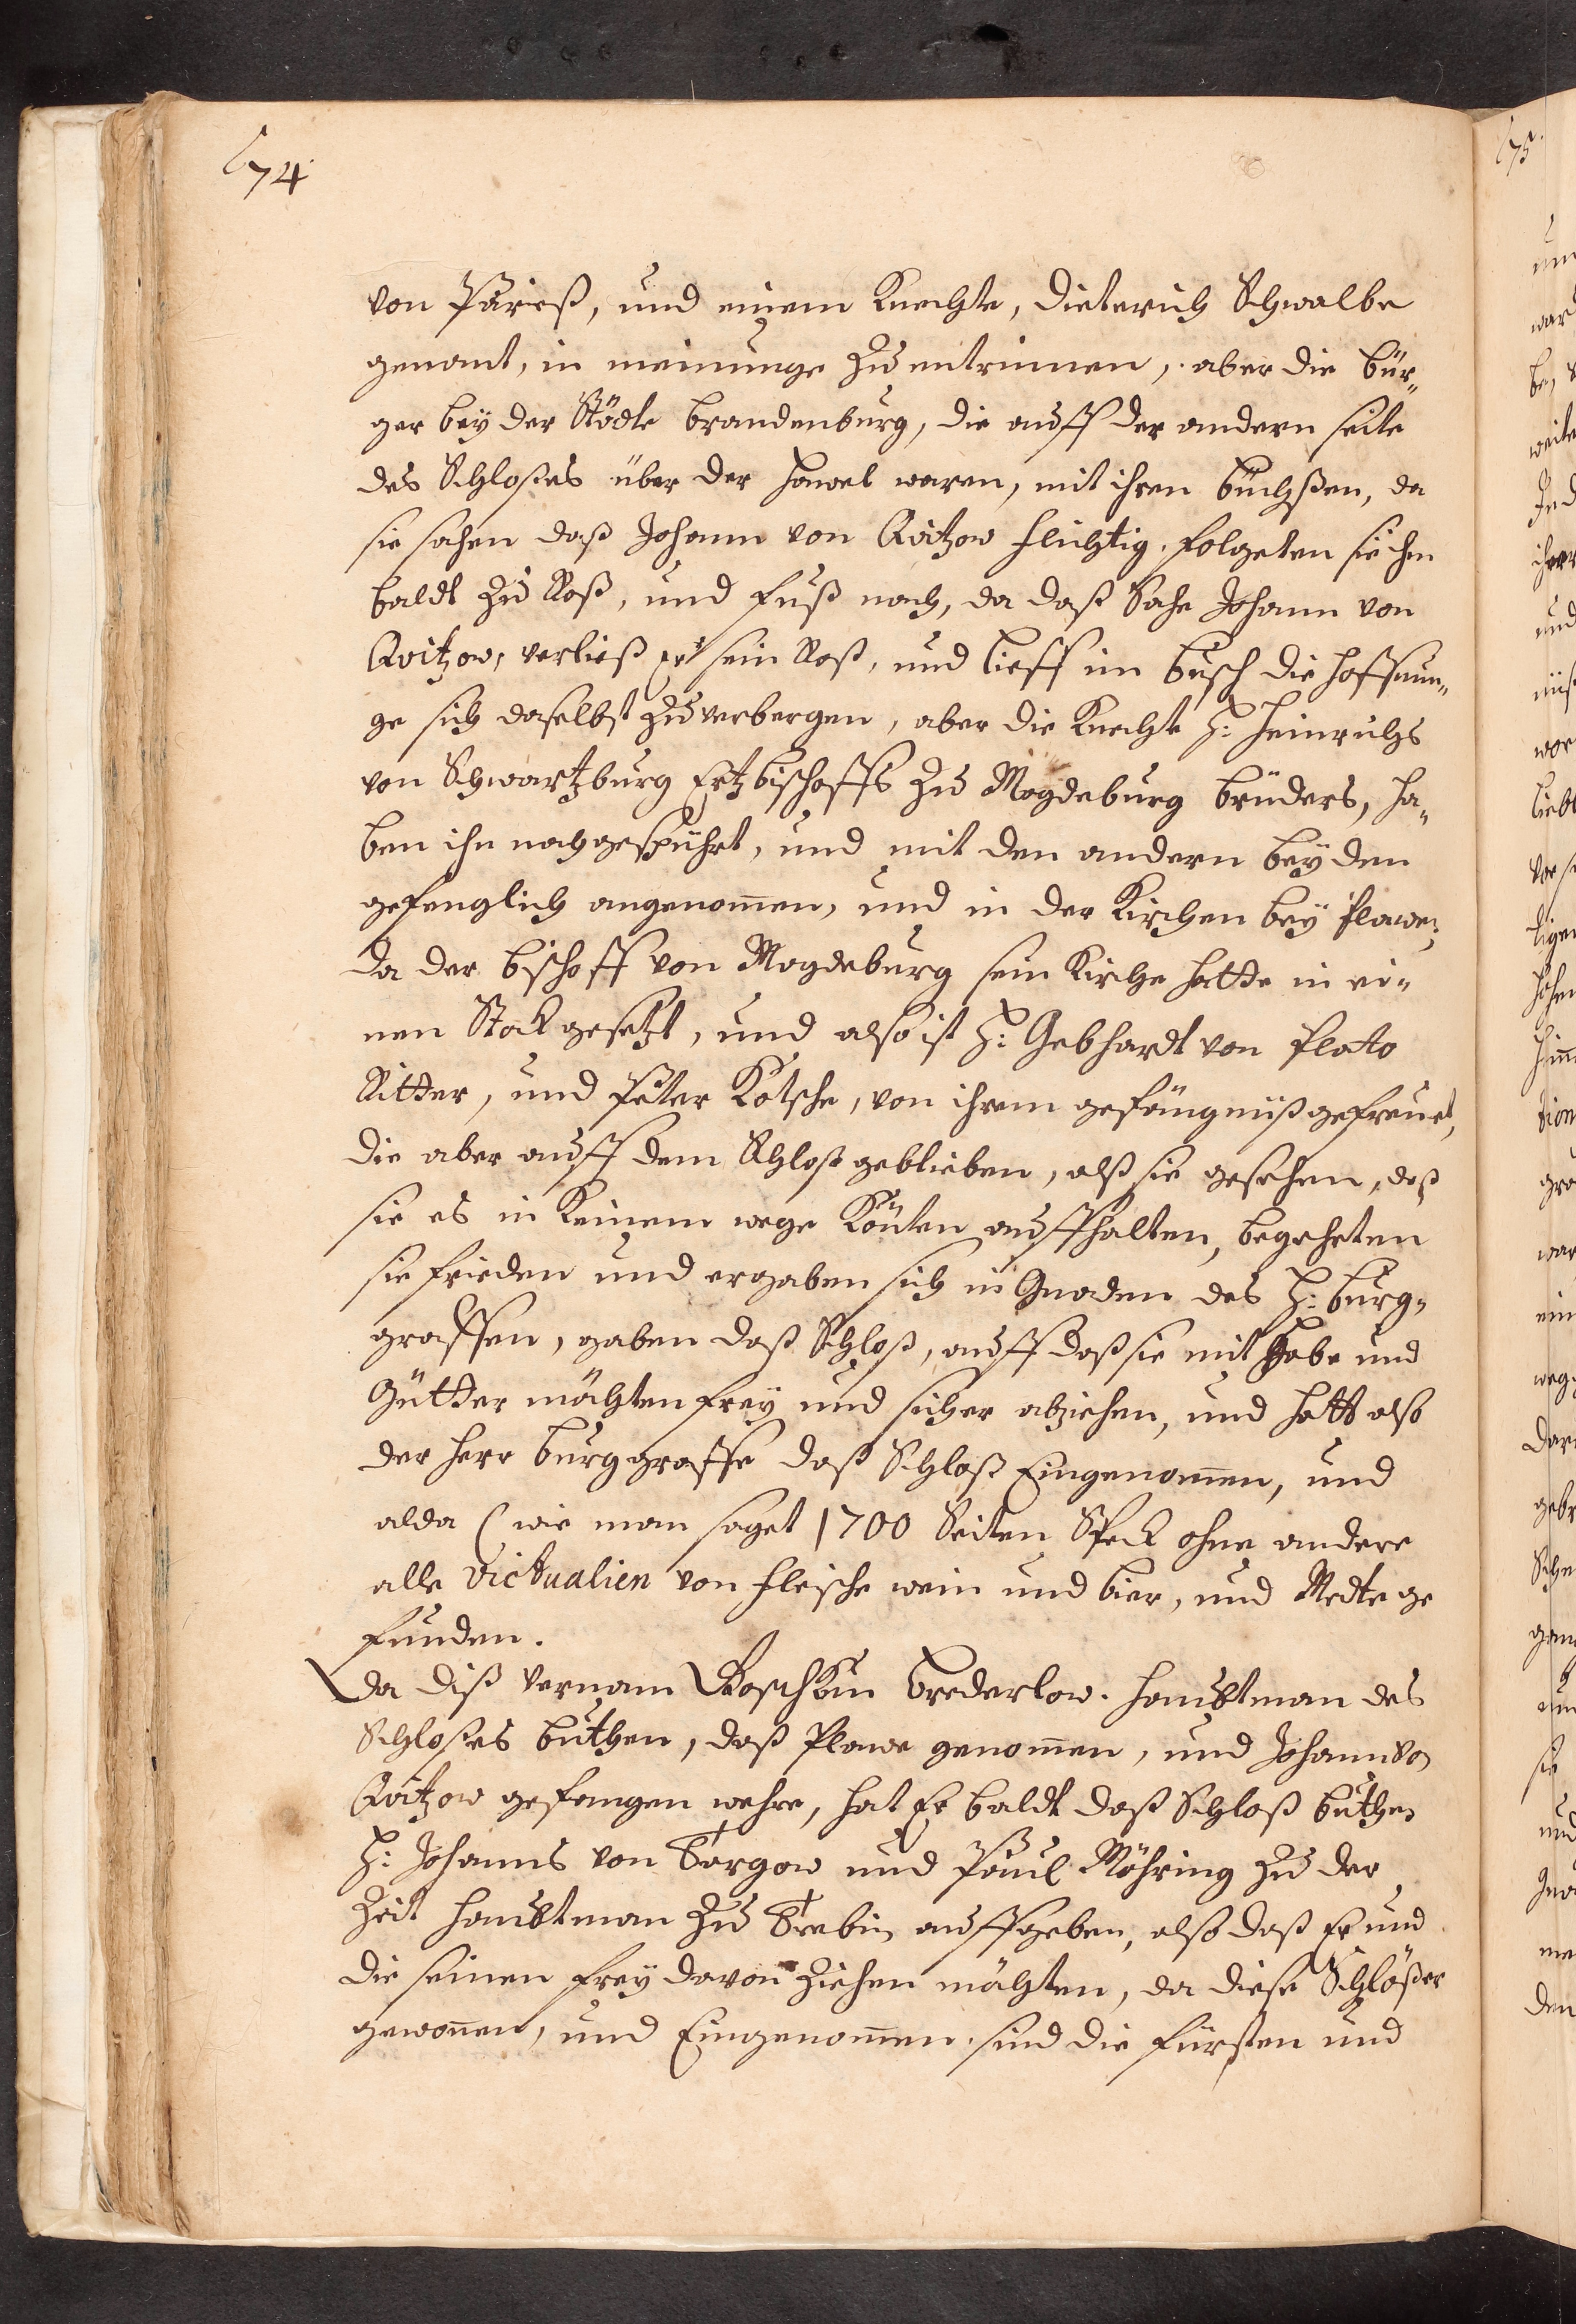 674.
von Pareß, und einem Knechte, Dieterich Schwalbe
genant, in meinunge zu entrinnen, aber die bür„
ger beyder Städte brandenburg, die auff der andern seite
des Schloßes über der Hawel waren, mit ihren büchßen, da
sie sahen daß Johann von Qvitzow flüchtig, folgeten sie ihm
baldt zu Roß, und fuß nach, da daß sahe Johann von
Qvitzow, verließ er sein Roß, und lieff im busch die hoffnun„
ge sich daselbst zuverbergen, aber die Knechte H: Heinrichs
von Schwartzburg Ertzbischoffs zu Magdeburg bruders, ha„
ben ihn nachgespührt, und mit den andern beyden
gefenglich angenom̄en, und in der Kirchen bey Plawe,
da der bischoff von Magdeburg sein Kirche hatte in ei„
nen Stock gesetzt, und also ist H: Gebhardt von Plato
Ritter, und Peter Kötsche, von ihrem gefängnüß gefreuet,
die aber auff dem Schloß geblieben, alß sie gesehen, daß
sie es in Keinem wege Könten auffhalten, begehrten
sie frieden und ergaben sich in Gnaden des H: burg„
graffen, gaben daß Schloß, auff daß sie mit Habe und
Gütter möchten frey und sicher abziehen, und hatt also
der Herr burggraffe daß Schloß Eingenom̄en, und
alda (wie man saget 1700 Seiten Speck ohne andere
alle Victualien von fleische wein und bier, und Medte ge
funden.
Da diß vernam Goschkin brederlow. Haubtman des
Schloßes buthen, daß Plawe genom̄en, und Johann von
Qvitzow gefangen wehre, hat Er baldt daß Schloß buthen
H: Johanns von Torgow und Paul Möhring zu der
Zeit Haubtman zu Trebin auffgeben, also daß Er und
die seinen frey davon ziehen möchten, da diese Schlößer
gewon̄en, und Eingenom̄en. sind die fürsten und
675.